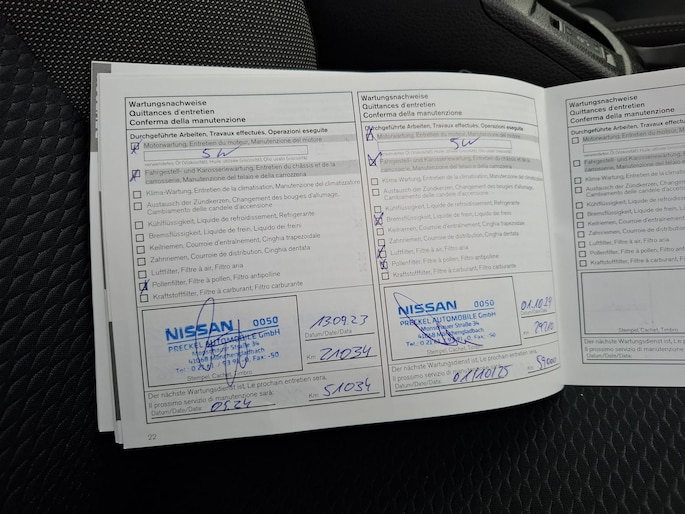 Wartungsnachweise
Quittances d'entretien
Conferma della manutenzione
Durchgeführte Arbeiten, Travaux effectués, Operazioni eseguite
Motorwartung, Entretien du moteur, Manutenzione del motore
5W
Fahrgestell- und Karosseriewartung, Entretien du châssis et de la
carosserie, Manutenzione del telaio e della carozzeria
Klima-Wartung, Entretien de la climatisation, Manutenzione del climatizzatore
Austausch der Zündkerzen, Changement des bougies d'allumage,
Cambiamento delle candele d'accensione
Kühlflüssigkeit, Liquide de refroidissement, Refrigerante
Bremsflüssigkeit, Liquide de frein, Liquido dei freni
Keilriemen, Courroie d'entraînement, Cinghia trapezoidale
Zahnriemen, Courroie de distribution, Cinghia dentata
Luftfilter, Filtre à air, Filtro aria
Pollenfilter, Filtre à pollen, Filtro antipolline
Kraftstofffilter, Filtre à carburant, Filtro carburante
NISSAN 0050
PRECKEL AUTOMOBILE GmbH
Monschauer Straße 34
41068 Mönchengladbach
Stempel, Cachet, Timbro
13.09.23
Datum/Date/Data
Km 21034
Der nächste Wartungsdienst ist, Le prochain entretien sera,
Il prossimo servizio di manutenzione sarà:
Datum/Date/Data: 09.24
Km 51034
22
Wartungsnachweise
Quittances d'entretien
Conferma della manutenzione
Durchgeführte Arbeiten, Travaux effectués, Operazioni eseguite
Motorwartung, Entretien du moteur, Manutenzione del motore
5W
Fahrgestell- und Karosseriewartung, Entretien du châssis et de la
carosserie, Manutenzione del telaio e della carozzeria
Klima-Wartung, Entretien de la climatisation, Manutenzione del climatizzatore
Austausch der Zündkerzen, Changement des bougies d'allumage,
Cambiamento delle candele d'accensione
Kühlflüssigkeit, Liquide de refroidissement, Refrigerante
Bremsflüssigkeit, Liquide de frein, Liquido dei freni
Keilriemen, Courroie d'entraînement, Cinghia trapezoidale
Zahnriemen, Courroie de distribution, Cinghia dentata
Luftfilter, Filtre à air, Filtro aria
Pollenfilter, Filtre à pollen, Filtro antipolline
Kraftstofffilter, Filtre à carburant, Filtro carburante
NISSAN 0050
PRECKEL AUTOMOBILE GmbH
Monschauer Straße 34
41068 Mönchengladbach
Stempel, Cachet, Timbro
Datum/Date/Data
Km
Der nächste Wartungsdienst ist, Le prochain entretien sera,
Il prossimo servizio di
Datum/Date/Data: 01/10/25
Km 59000
Wartungsnachweise
Quittances d'entretien
Conferma della manutenzione
Durchgeführte Arbeiten, Travaux effectués
Motorwartung, Entretien du moteur
Fahrgestell- und Karosseriewartung
carosserie, Manutenzione del telaio
Klima-Wartung, Entretien de la
Austausch der Zündkerzen
Cambiamento delle candele
Kühlflüssigkeit, Liquide de
Bremsflüssigkeit, Liquide de
Keilriemen, Courroie d'entraînement
Zahnriemen, Courroie de
Luftfilter, Filtre à air
Pollenfilter, Filtre à pollen
Kraftstofffilter, Filtre à
Stempel, Cachet, Timbro
Der nächste Wartungsdienst ist, Le
Il prossimo servizio di manutenzione
Datum/Date/Data: